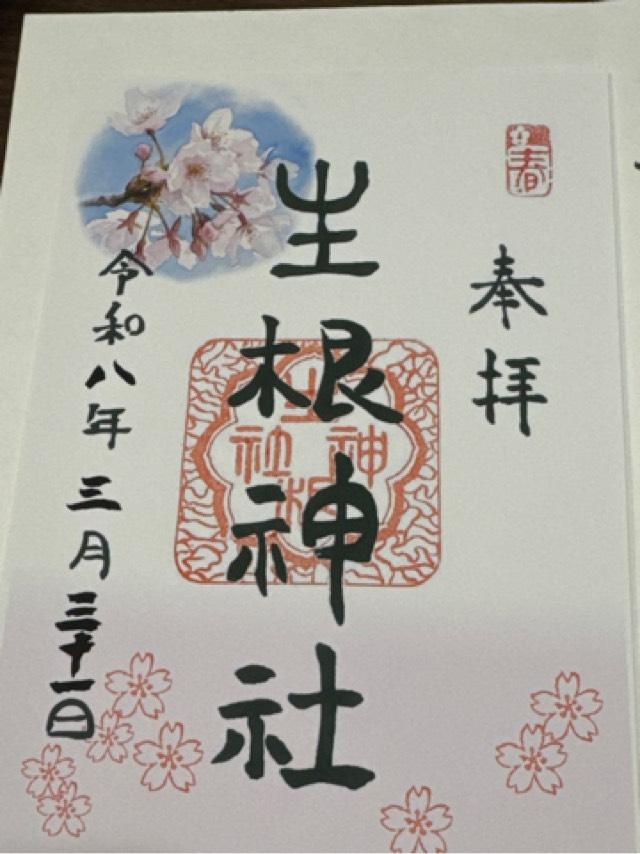 春
奉拝
生根神社
生根神社
令和八年三月三十一日